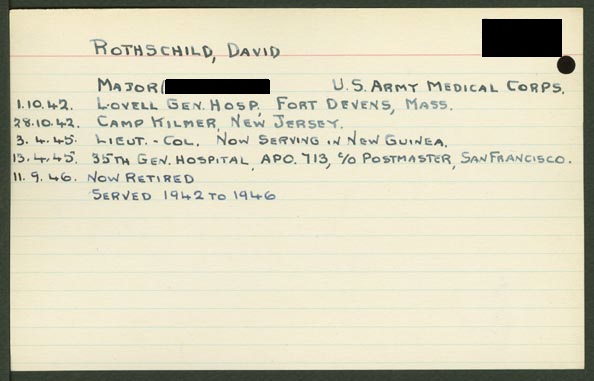 ROTHSCHILD, DAVID
MAJOR( U.S. ARMY MEDICAL CORPS.
1.10.42. LOVELL GEN. HOSP., FORT DEVENS, MASS.
28.10.42. CAMP KILMER, NEW JERSEY.
3.4.45. LIEUT.-COL. NOW SERVING IN NEW GUINEA.
13.4.45. 35TH GEN. HOSPITAL, APO. 713, C/O POSTMASTER, SAN FRANCISCO.
11.9.46. NOW RETIRED
SERVED 1942 TO 1946